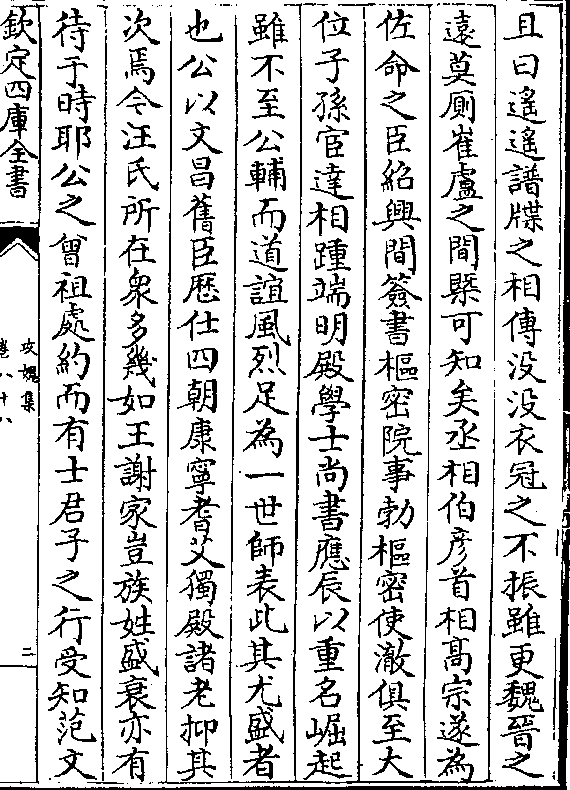 且曰遙遙譜牒之相傳没没衣冠之不振雖更魏晉之
遠莫厠崔盧之間槩可知矣丞相伯彦首相髙宗遂為
佐命之臣紹興間簽書樞宻院事勃樞宻使澈俱至大
位子孫宦達相踵端明殿學士尚書應辰以重名崛起
雖不至公輔而道誼風烈足為一世師表此其尤盛者
也公以文昌舊臣歴仕四朝康寧耆艾獨殿諸老抑其
次焉今汪氏所在衆多幾如王謝家豈族姓盛衰亦有
待于時耶公之曾祖處約而有士君子之行受知范文
欽定四庫全書
攻媿集
卷八十八
二